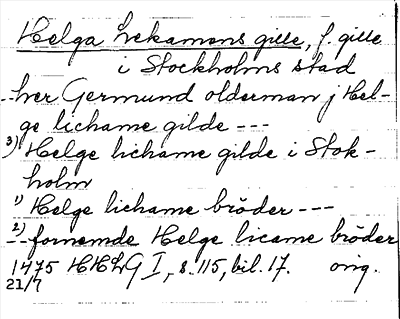 Helga Lekamens gille, f. gille
i Stockholms stad
--her Germund olderman j Hel-
ge lichame gilde ---
3) Helge lichame gilde i Stok-
holm
1) Helge lichame bröder ---
2) --fornemde Helge licame bröder
1475 HHLG I, s. 115, bil. 17. orig.
21/7